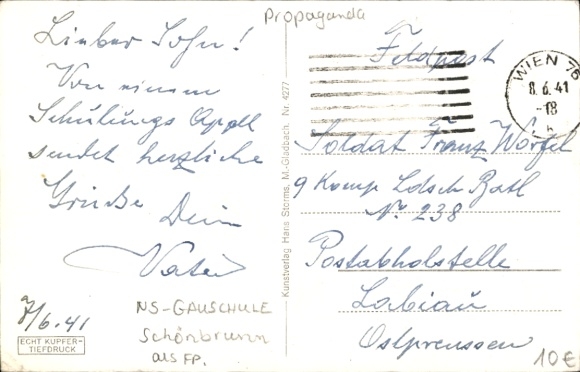 Propaganda
Lieber Sohn!
Von einem
Schulungs Apell
sendet herzliche
Grüße Dein
Vater
7/6.41
ECHT KUPFER-
TIEFDRUCK
NS-GAUSCHULE
Schönbrunn
als FP.
Kunstverlag Hans Storms, M.-Gladbach. Nr. 4277
Feldpost
WIEN 76
8.6.41
-18
Soldat Franz Worfel
9 Komp Ldsch Batl
Nr. 238
Postabholstelle
Labiau
Ostpreussen
10€